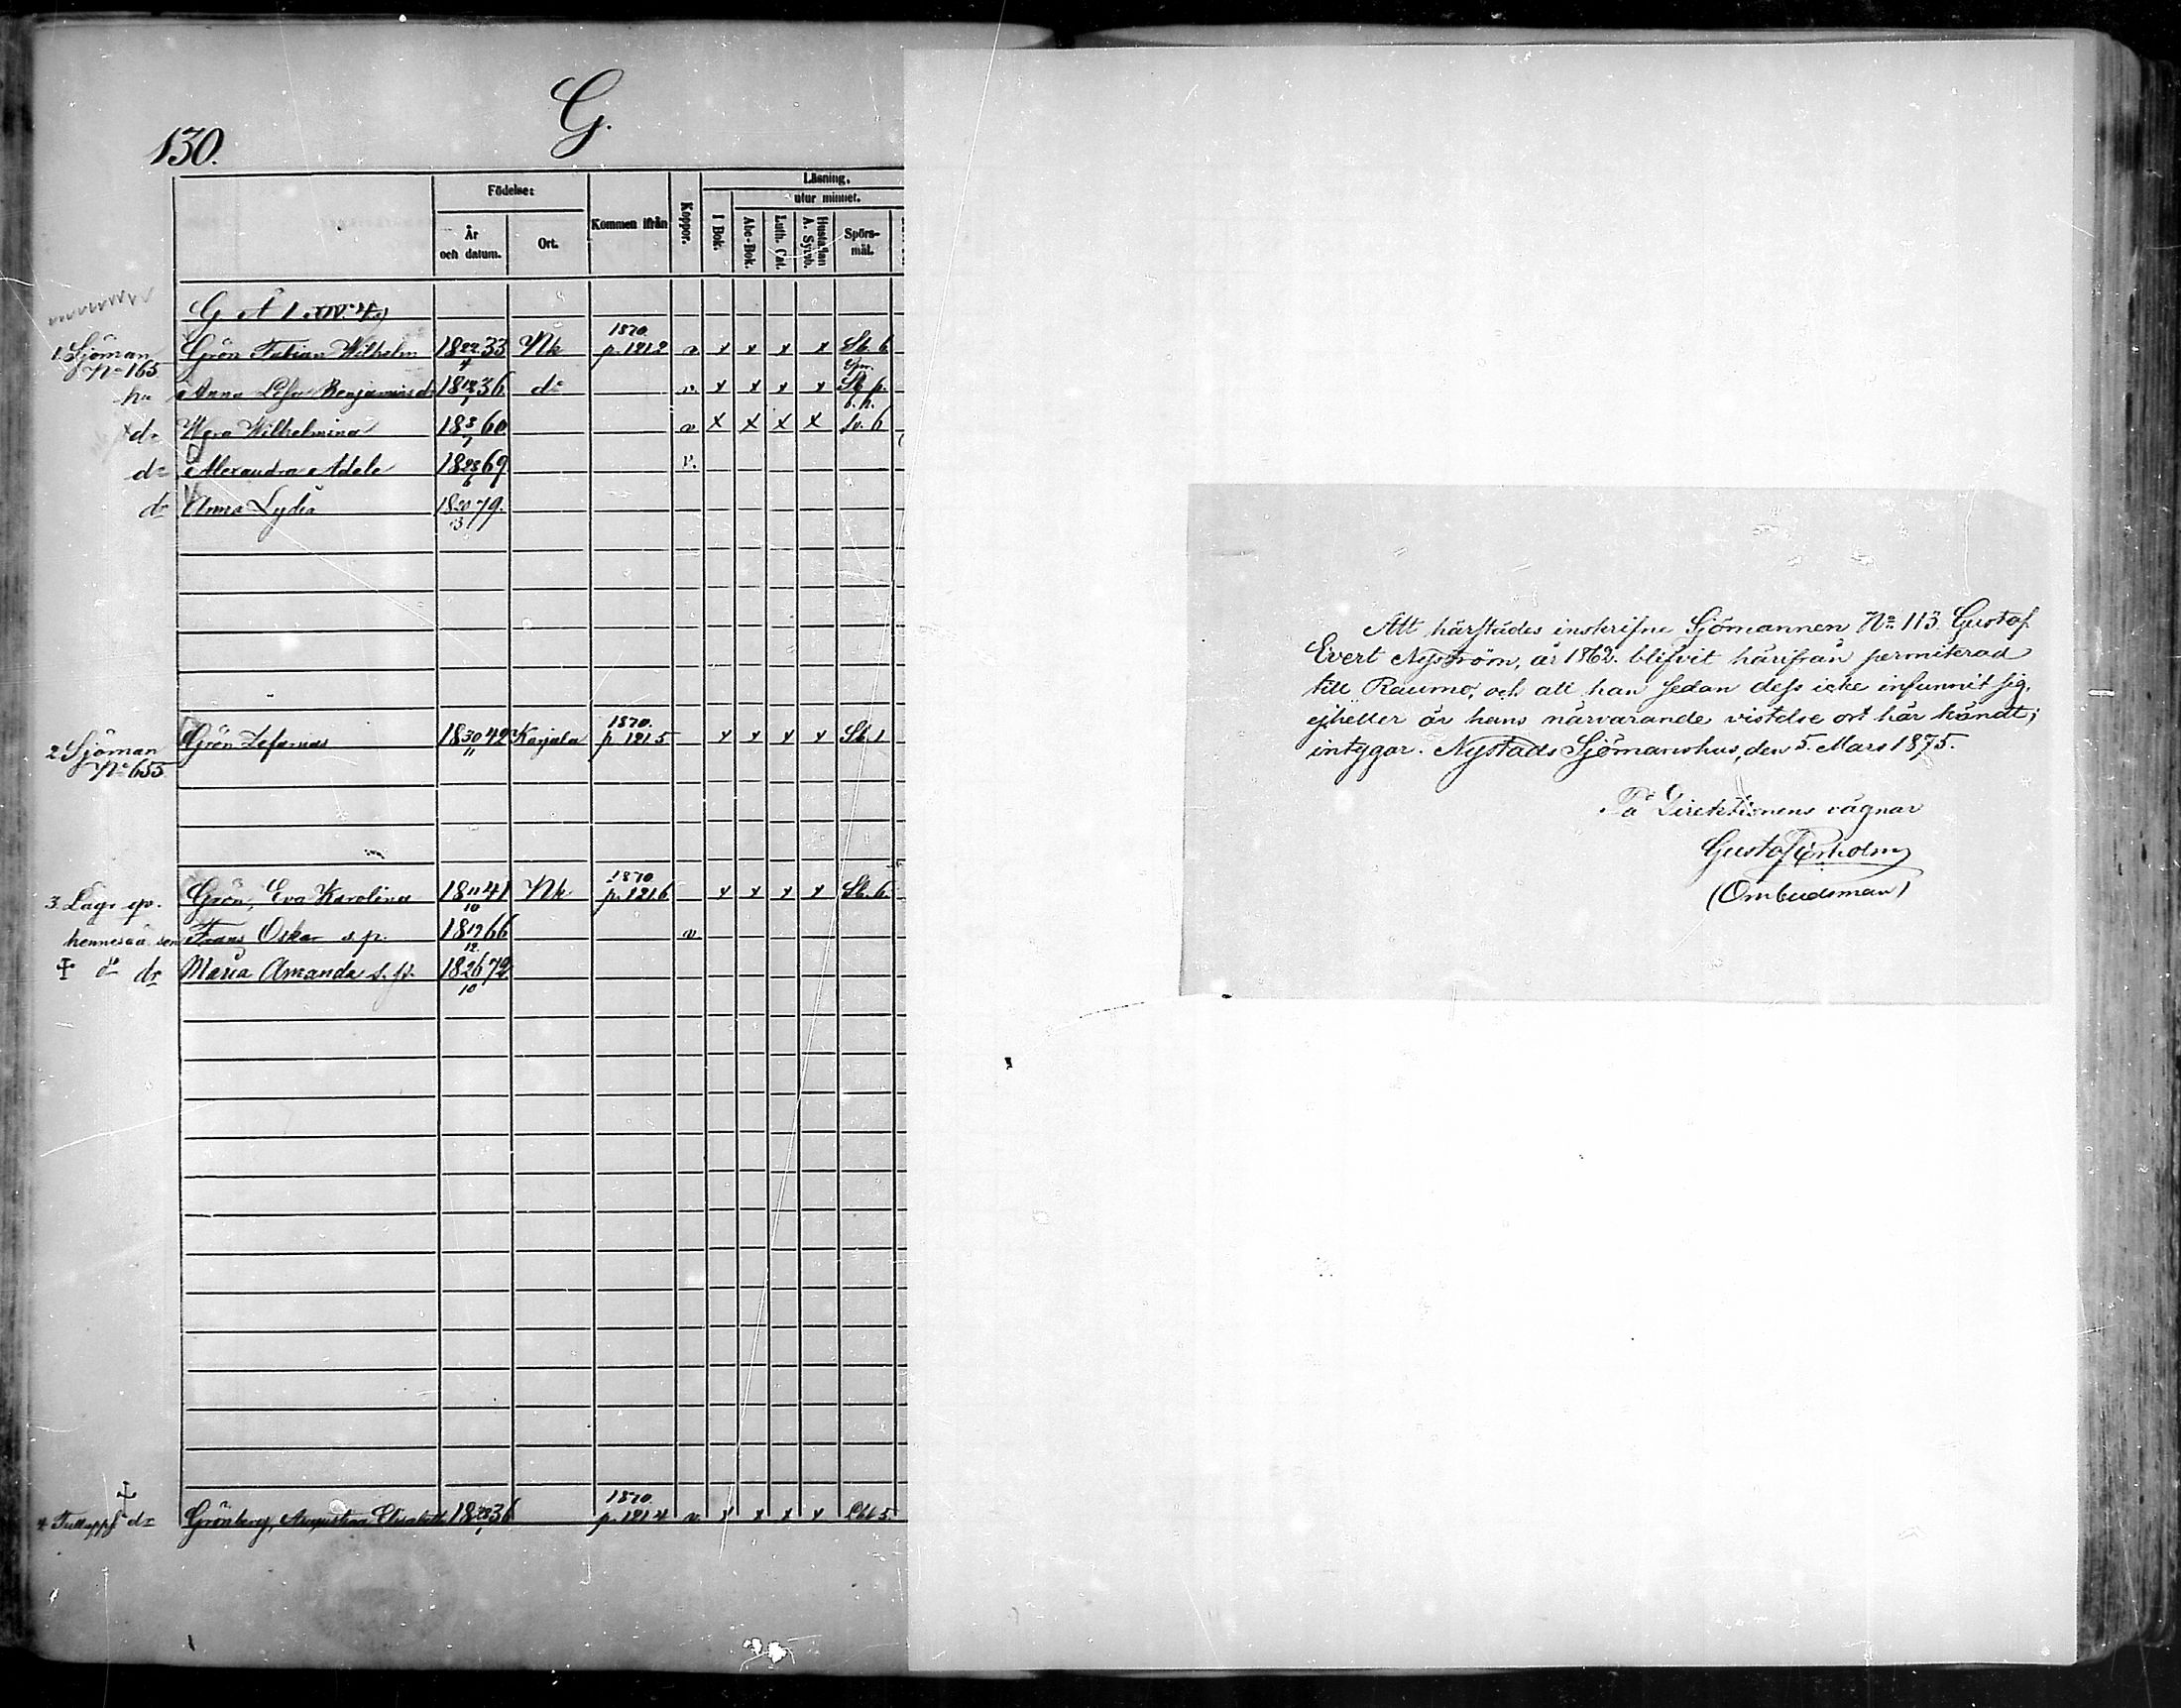 G.
130.
Födelse:
Kommen ifrån
Koppor.
Läsning.
utur minnet.
År och datum.
Ort.
I Bok.
Abc-Bok.
Luth. Cat.
Hustaflan A. Symb.
Spörs-mål.
G A 1
1 Sjöman Grön Fabian Wilhelm 18 22/4 33 Nk 1870. p. 1212 v x x x x Sb. 6
No 165
hu Anna Lisa Benjaminsd 36 do v. x x x x
dr Wilhelmina 18 8/7 60 v x x x x 6
dr Alexandra Adele 18 28/6 69 v.
dr Anna Lydia 18 20/3 79.
2 Sjöman Grön Zefanias 18 30/11 42 Karjala 1870. p 1215 x x x x Sb. 1
No 655
3. Grön, Eva Karolina 18 11/10 41 Nk 1870 p. 1216 x x x x Sb. 6.
hennes oä. son Frans Oskar s. p. 18 19/12 66 v
do dr Maria Amanda s. p. 18 26/10 72
4 dr Grönberg, Augustina Elisabeth 36 1870. p. 1214 v x x x x 5
Att härstädes inskrifne Sjömannen No 113. Gustaf
Evert Nyström, år 1862. blifvit härifrån permiterad
till Raumo, och att han sedan dess icke infunnit sig,
ejheller är hans närvarande vistelse ort här kändt;
intygar. Nystads Sjömanshus, den 5. Mars 1875.
På Direktionens vägnar
Gustaf
(Ombudsman)